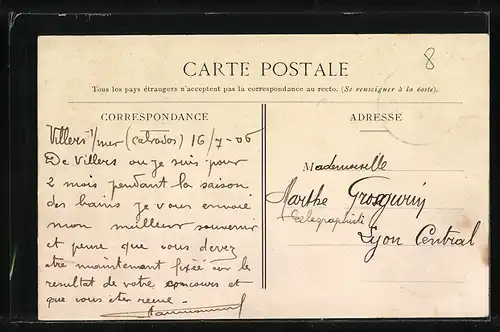 8
CARTE POSTALE
Tous les pays étrangers n'acceptent pas la correspondance au recto. (Se renseigner à la poste).
CORRESPONDANCE
Villers s/mer (Calvados) 16/7-06
De Villers ou je suis pour
2 mois pendant la saison
des bains je vous envoie
mon meilleur souvenir
et pense que vous devez
etre maintenant fixée sur le
resultat de votre concours et
que vous êtes reçue.
ADRESSE
Mademoiselle
Marthe
télégraphiste
Lyon Central